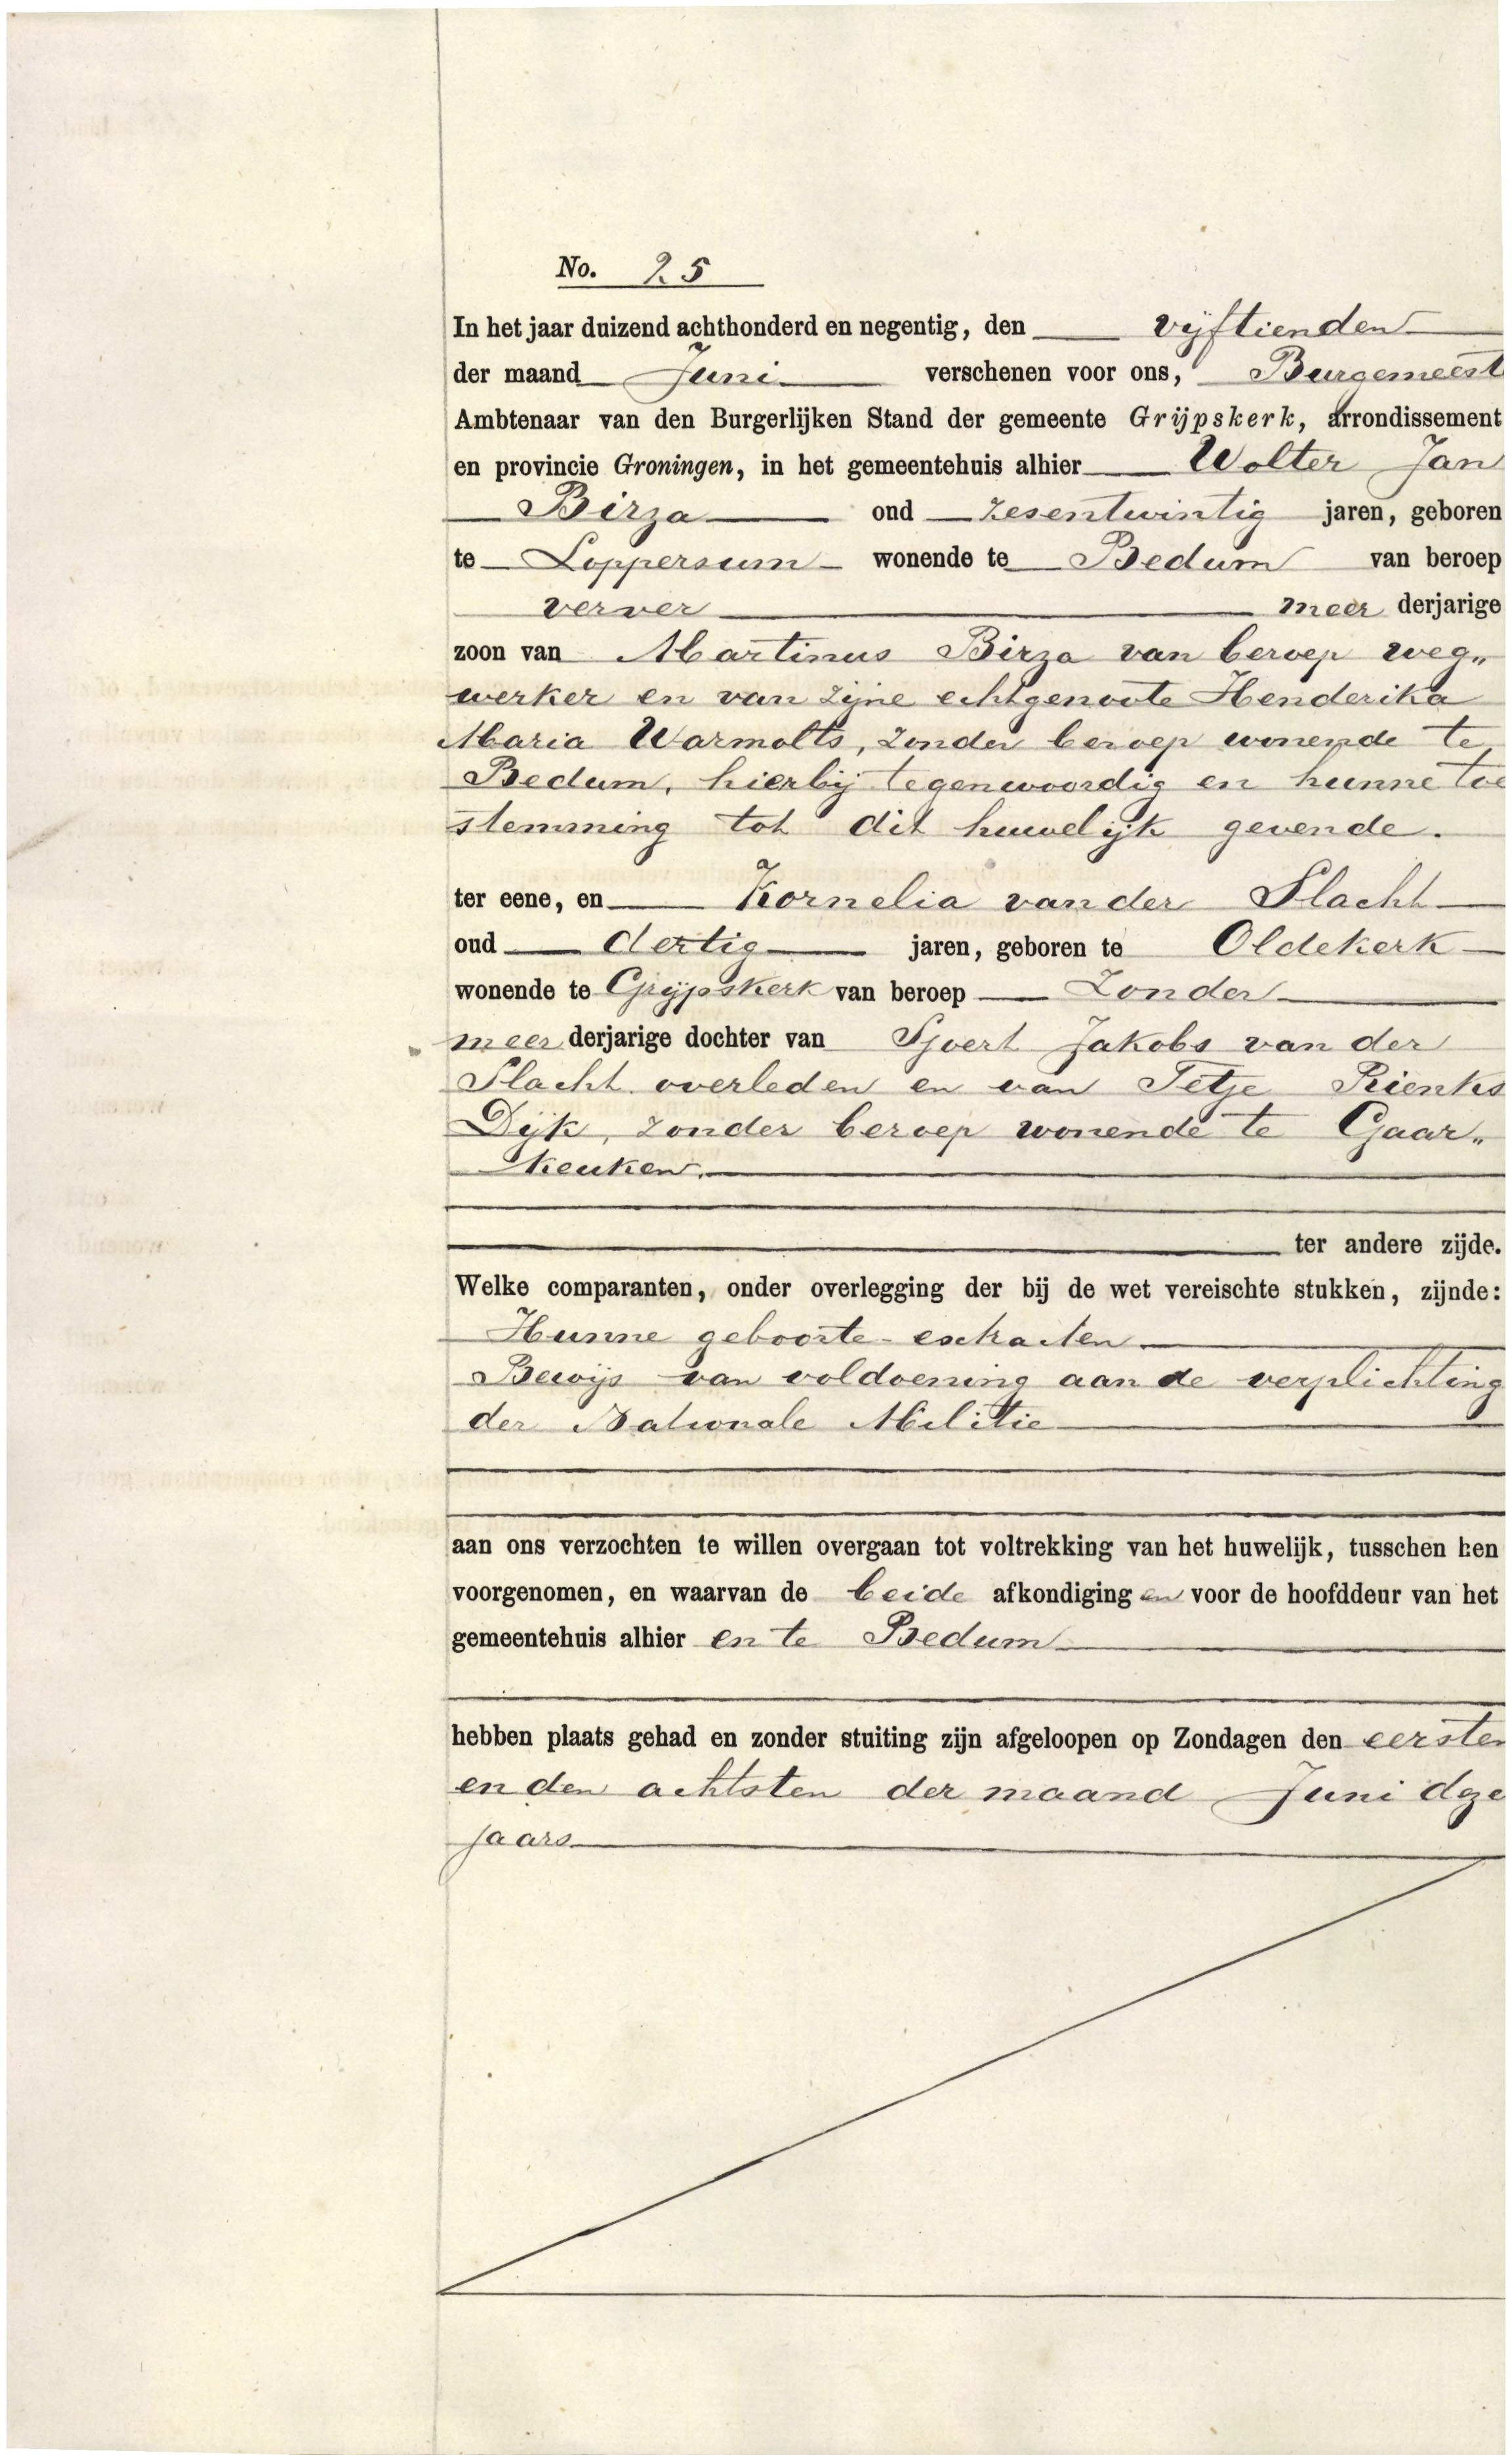 No. 25
In het jaar duizend achthonderd en negentig, den vijftienden
der maand Juni verschenen voor ons, Burgemeest
Ambtenaar van den Burgerlijken Stand der gemeente Grijpskerk, arrondissement
en provincie Groningen, in het gemeentehuis alhier Wolter Jan
Birza ond zesentwintig jaren, geboren
te Loppersum wonende te Bedum van beroep
verver meer derjarige
zoon van Martinus Birza van beroep weg„
werker en van zijne echtgenoote Henderika
Maria Warmolts, zonder beroep wonende te
Bedum, hierbij tegenwoordig en hunne toe
stemming tot dit huwelijk gevende.
ter eene, en Kornelia van der Slacht
oud dertig jaren, geboren te Oldekerk
wonende te Grijpskerk van beroep Zonder
meer derjarige dochter van Sjoert Jakobs van der
Slacht overleden en van Tetje Rienks
Dijk, zonder beroep wonende te Gaar„
keuken.
ter andere zijde.
Welke comparanten, onder overlegging der bij de wet vereischte stukken, zijnde:
Hunne geboorte-extracten
Bewijs van voldoening aan de verplichting
der Nationale Militie
aan ons verzochten te willen overgaan tot voltrekking van het huwelijk, tusschen hen
voorgenomen, en waarvan de beide afkondiging en voor de hoofddeur van het
gemeentehuis alhier en te Bedum
hebben plaats gehad en zonder stuiting zijn afgeloopen op Zondagen den eersten
en den achtsten der maand Juni deze
jaars